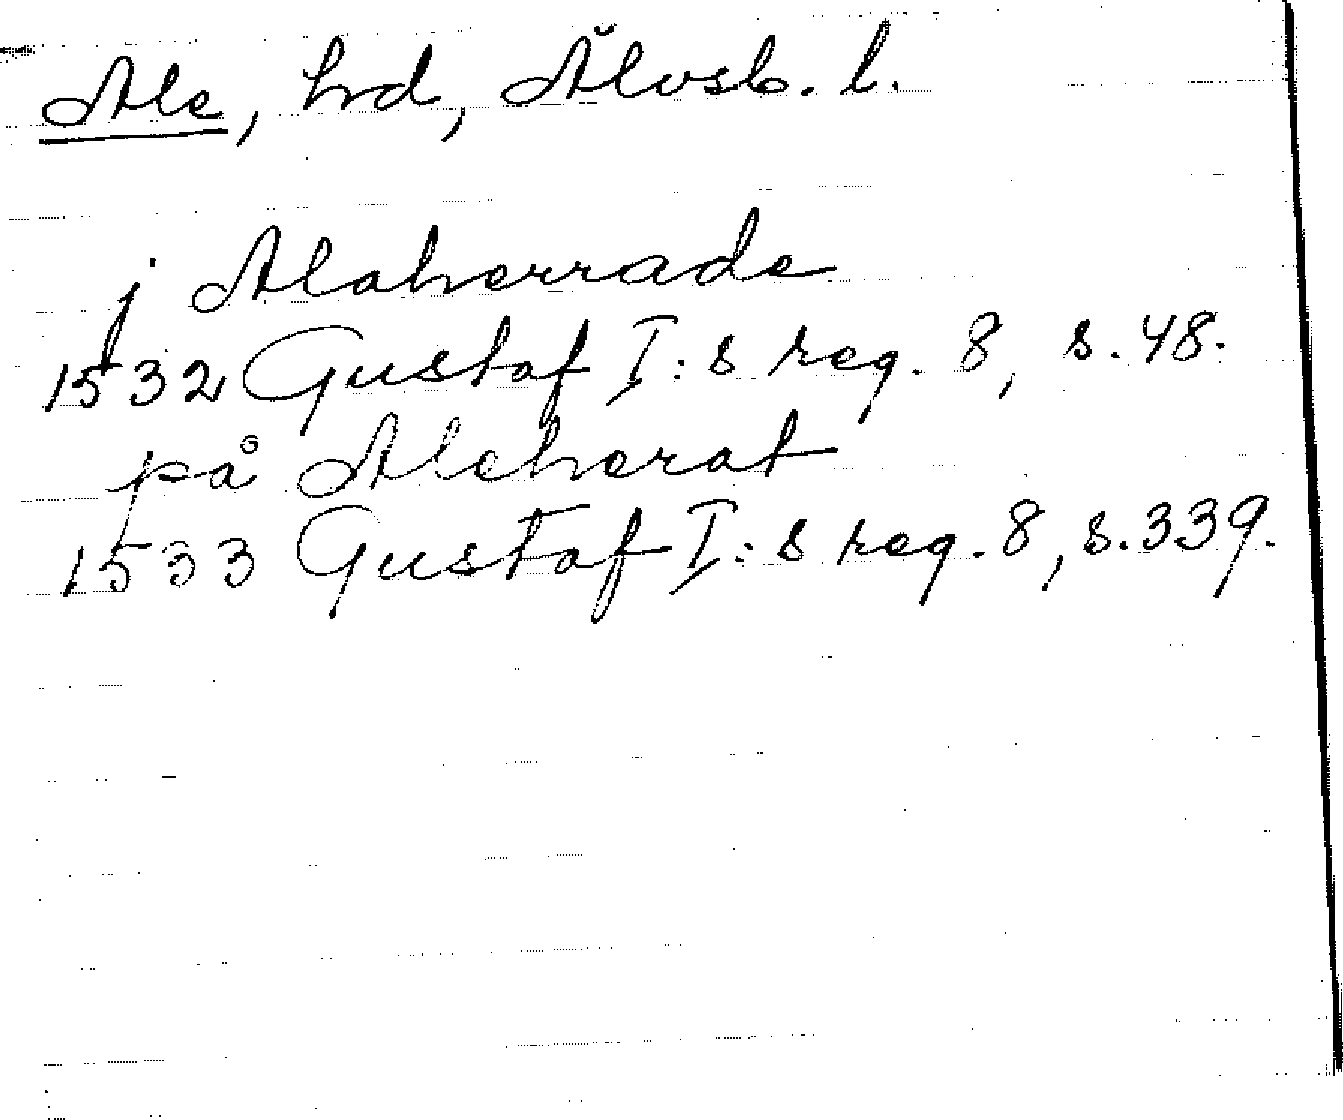 Ale, hd, Älvsb. l.
j Alaherrade
1532 Gustaf I:s reg. 8, s. 48.
på Aleherat
1533 Gustaf I:s reg. 8, s. 339.